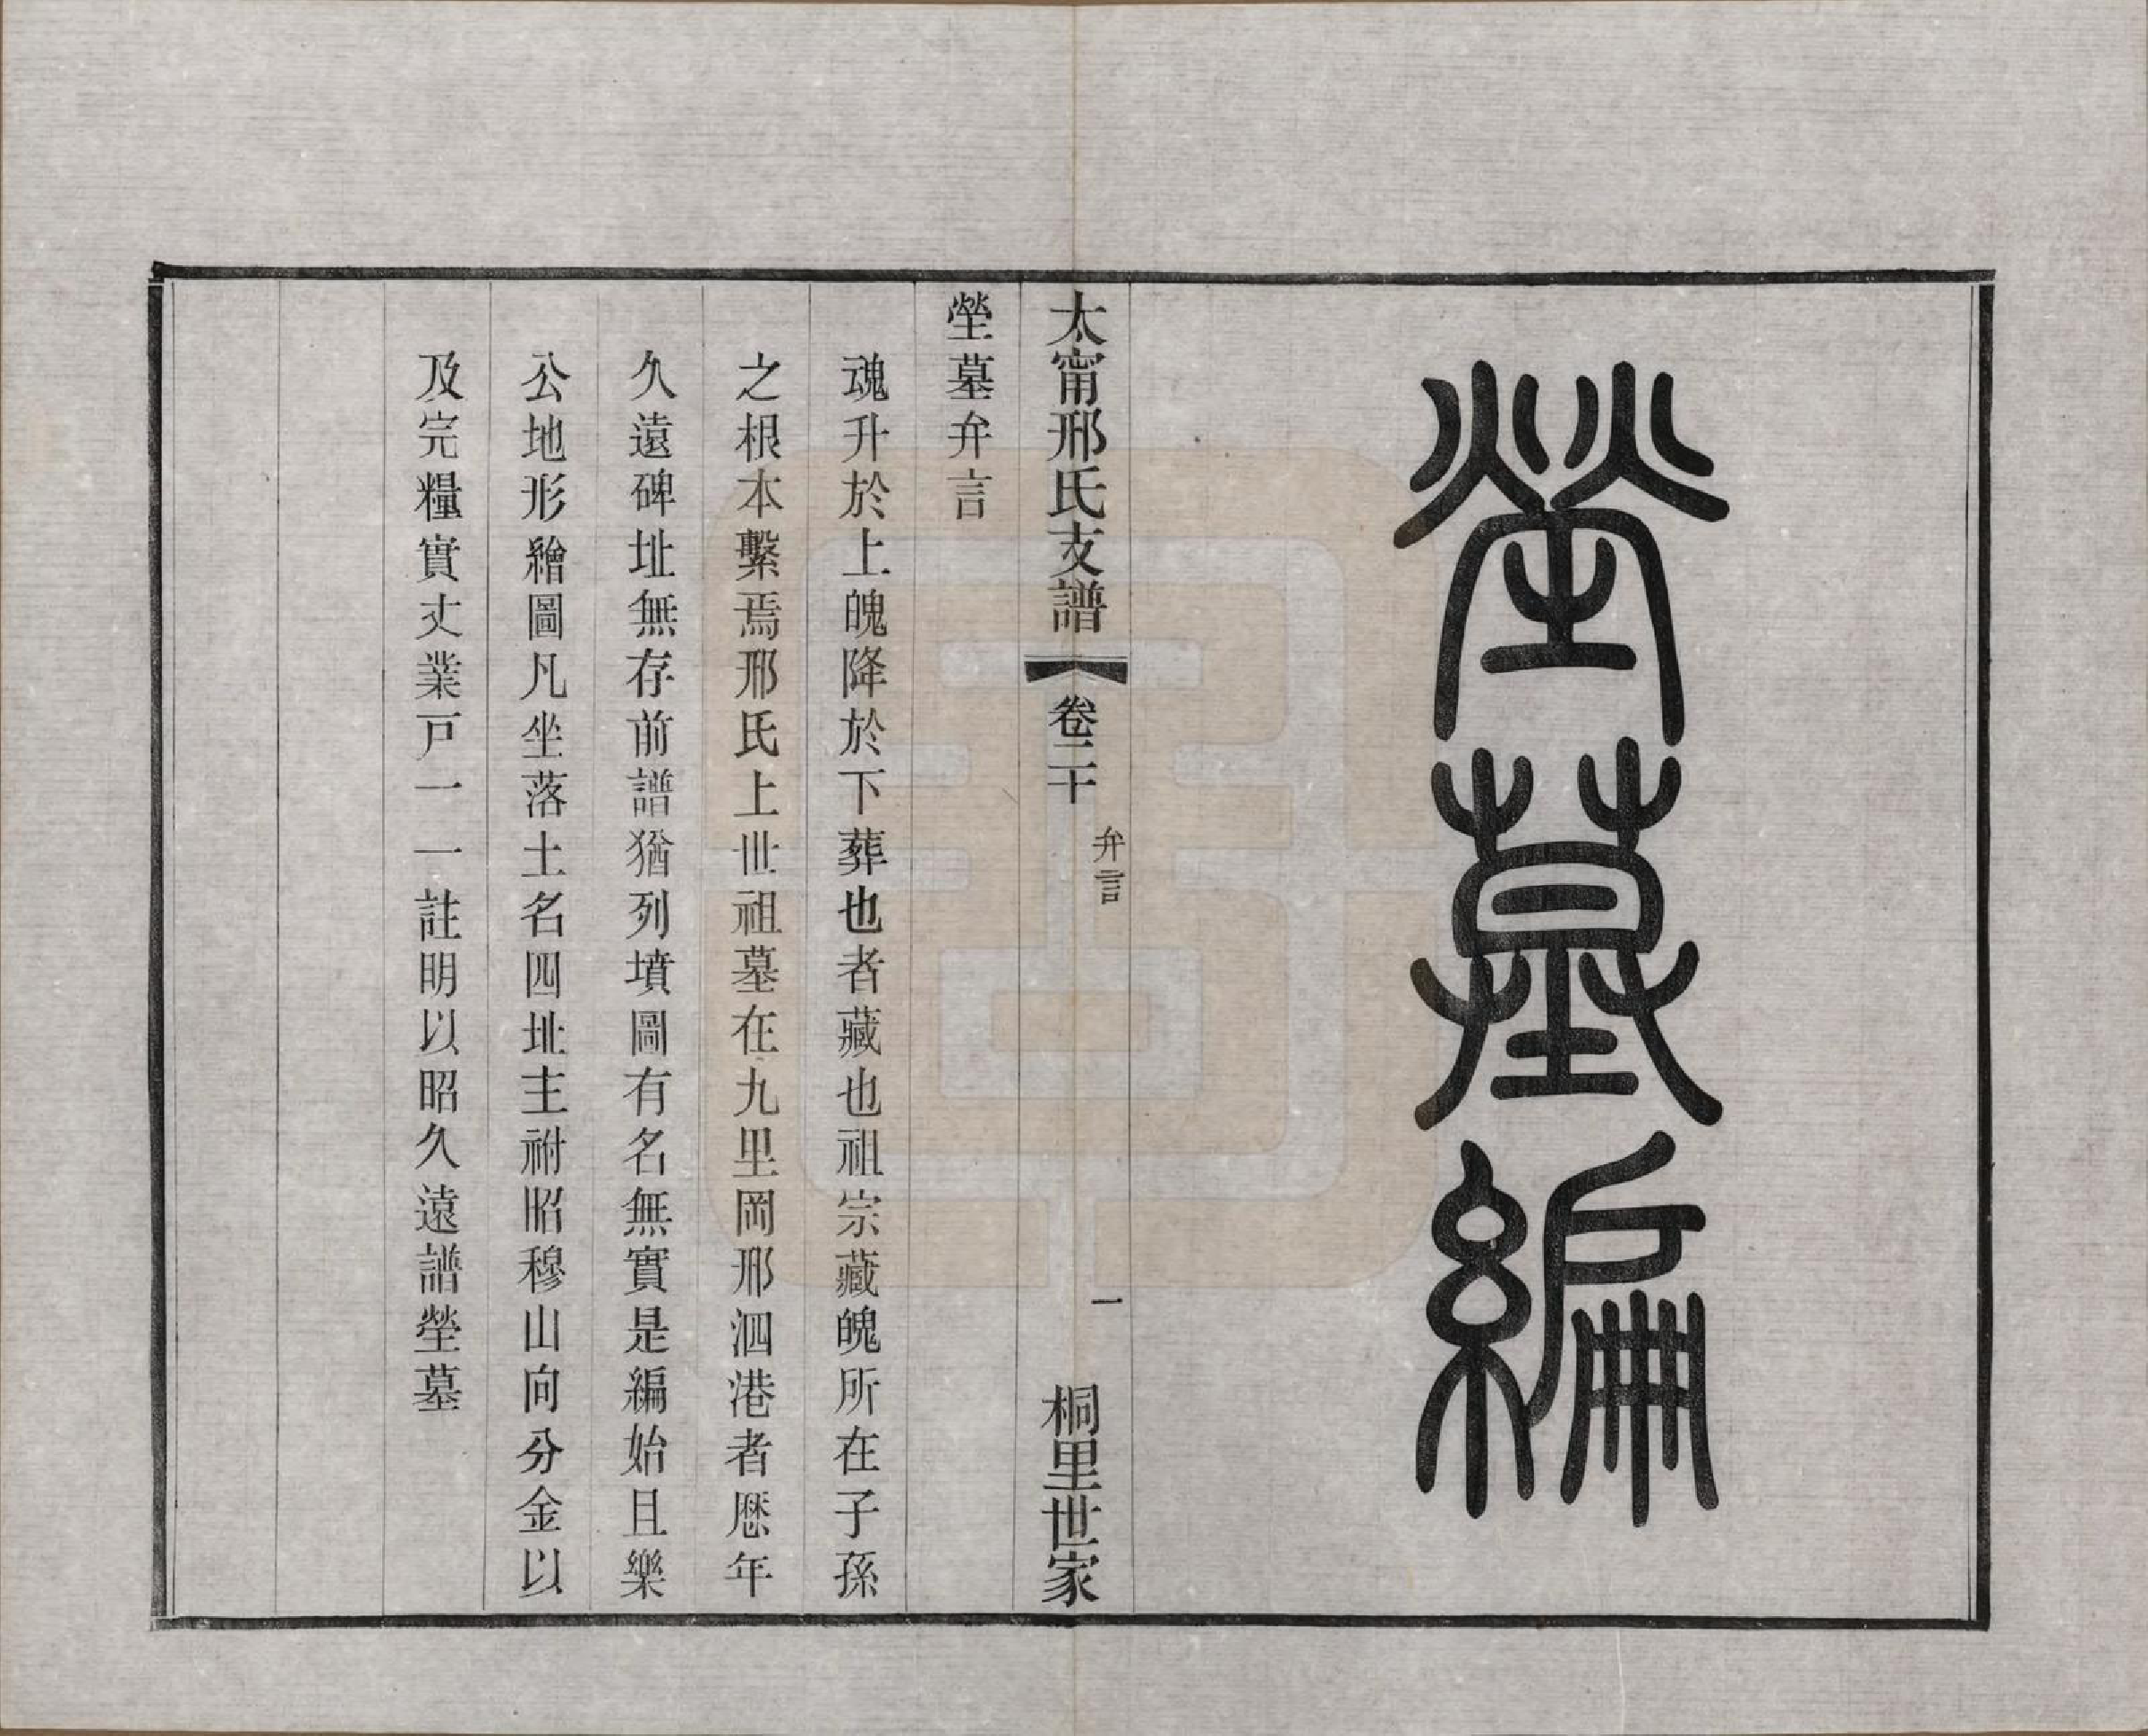 塋墓編
太甯邢氏支譜 卷二十 弁言 一 桐里世家
塋墓弁言
魂升於上魄降於下葬也者藏也祖宗藏魄所在子孫
之根本繫焉邢氏上世祖墓在九里岡邢泗港者厯年
久遠碑址無存前譜猶列墳圖有名無實是編始且樂
公地形繪圖凡坐落土名四址主祔昭穆山向分金以
及完糧實丈業戸一一註明以昭久遠譜塋墓